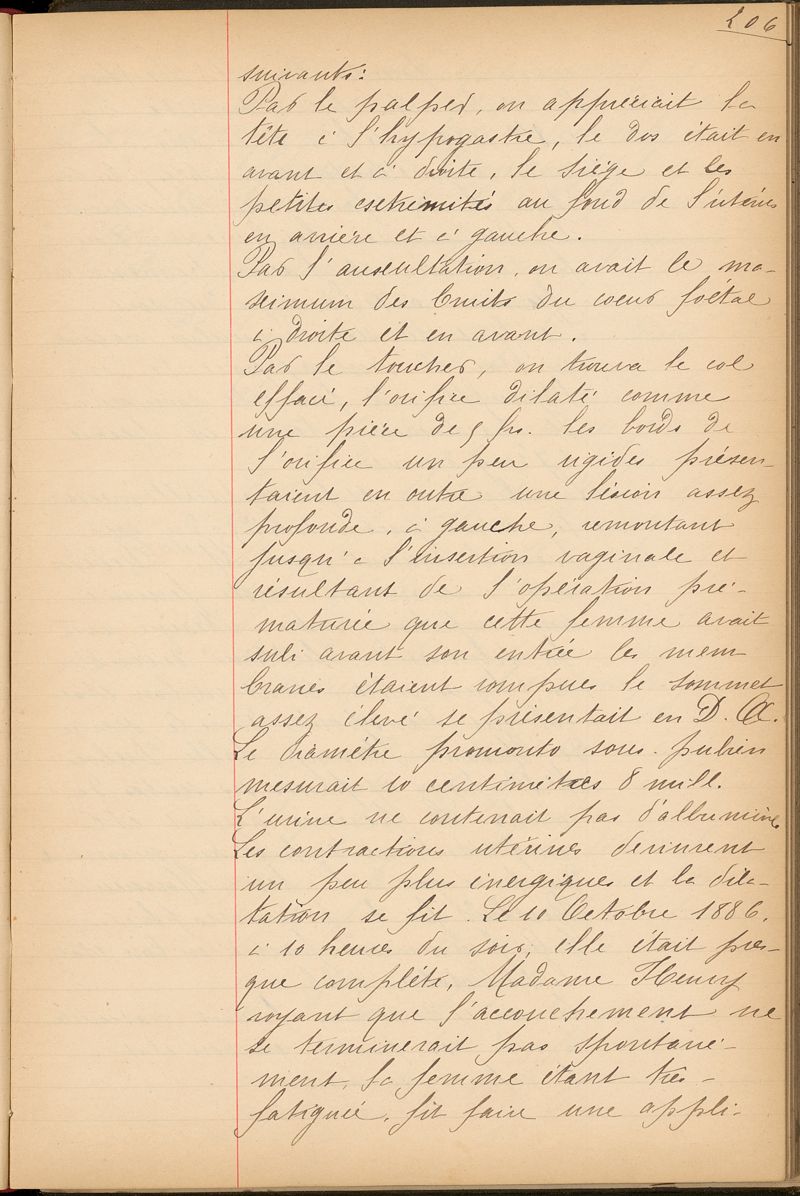 206
suivants:
Par le palper, on appréciait la
tête à l'hypogastre, le dos était en
avant et à droite, le siège et les
petites extrémités au fond de l'utérus
en arrière et à gauche.
Par l'auscultation, on avait le ma-
ximum des bruits du coeur foetal
à droite et en avant.
Par le toucher, on trouva le col
effacé, l'orifice dilaté comme
une pièce de 5 frs. les bords de
l'orifice un peu rigides présen-
taient en outre une lésion assez
profonde, à gauche, remontant
jusqu'à l'insertion vaginale et
résultant de l'opération pré-
maturée que cette femme avait
subi avant son entrée les mem
branes étaient rompues le sommet
assez élevé se présentait en D.
Le diamètre promonto sous-pubien
mesurait 10 centimètres 8 mill.
L'urine ne contenait pas d'albumine
Les contractions utérines devinrent
un peu plus énergiques et la dila-
tation se fit. Le 10 Octobre 1886,
à 10 heures du soir, elle était pres-
que complète, Madame Henry
voyant que l'accouchement ne
se terminerait pas spontané-
ment, la femme étant très-
fatiguée, fit faire une appli-